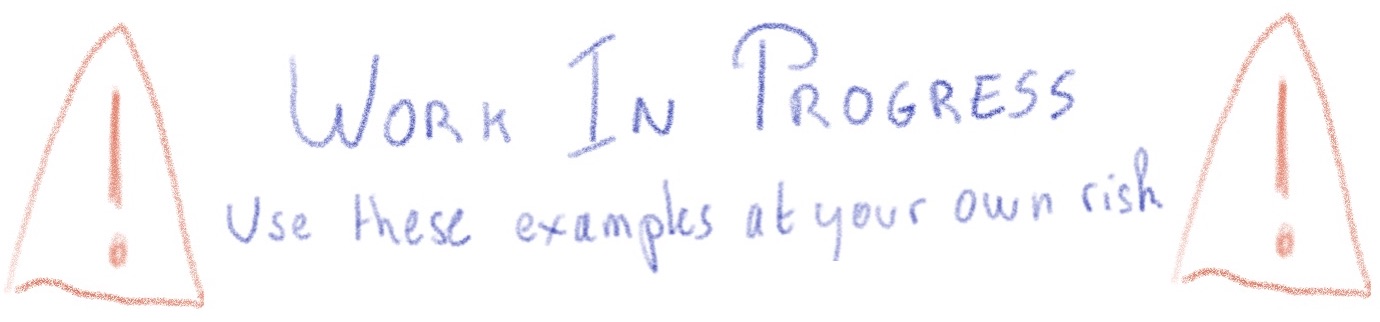 WORK IN PROGRESS
Use these examples at your own risk